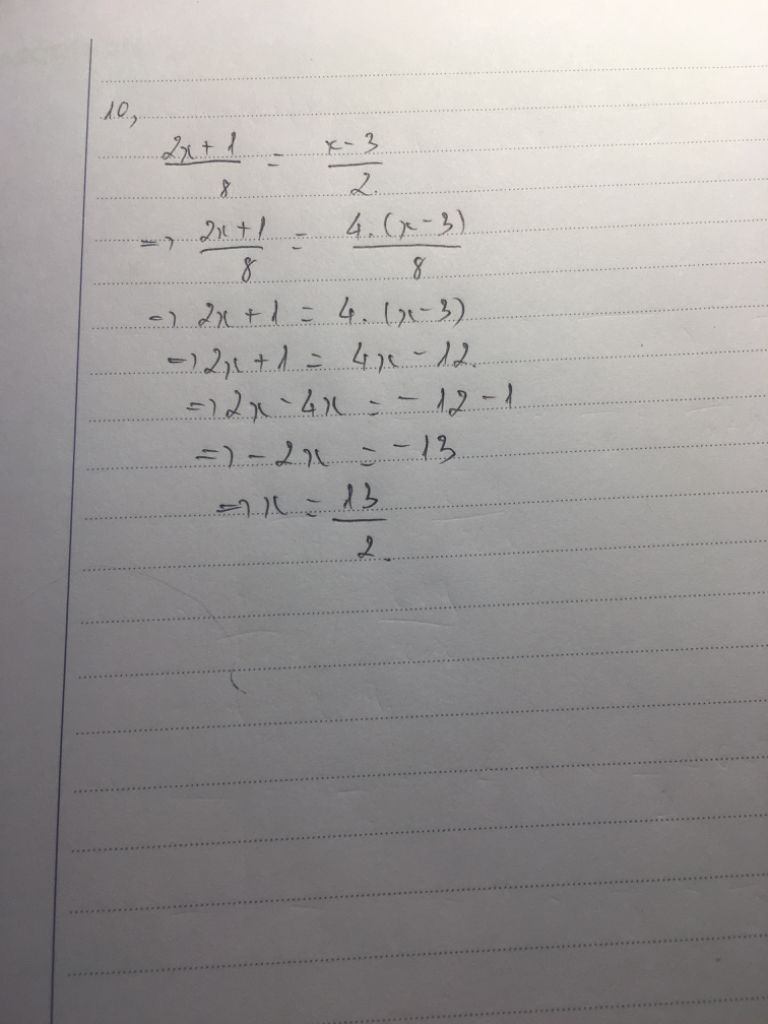 10,
2x + 1 / 8 = x - 3 / 2.
=> 2x + 1 / 8 = 4. (x - 3) / 8
=> 2x + 1 = 4. (x - 3)
=> 2x + 1 = 4x - 12.
=> 2x - 4x = - 12 - 1
=> - 2x = - 13
=> x = 13 / 2.